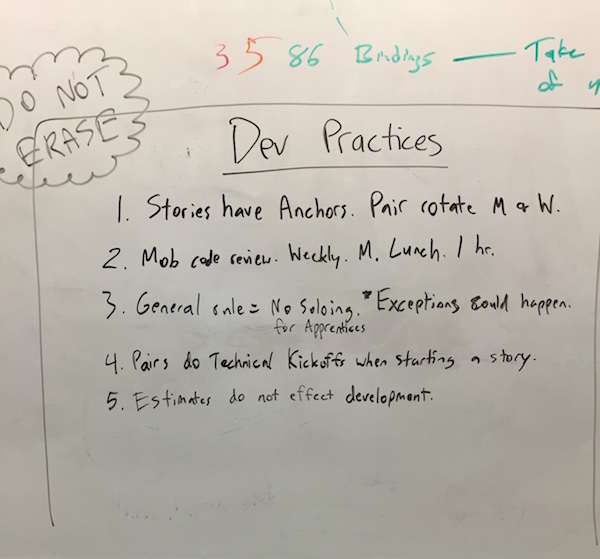 3 5 86 Bindings — Take
of
DO NOT
ERASE
Dev Practices
1. Stories have Anchors. Pair rotate M & W.
2. Mob code review. Weekly. M. Lunch. 1 hr.
3. General rule = No Soloing. *Exceptions could happen.
for Apprentices
4. Pairs do Technical Kickoffs when starting a story.
5. Estimates do not effect development.